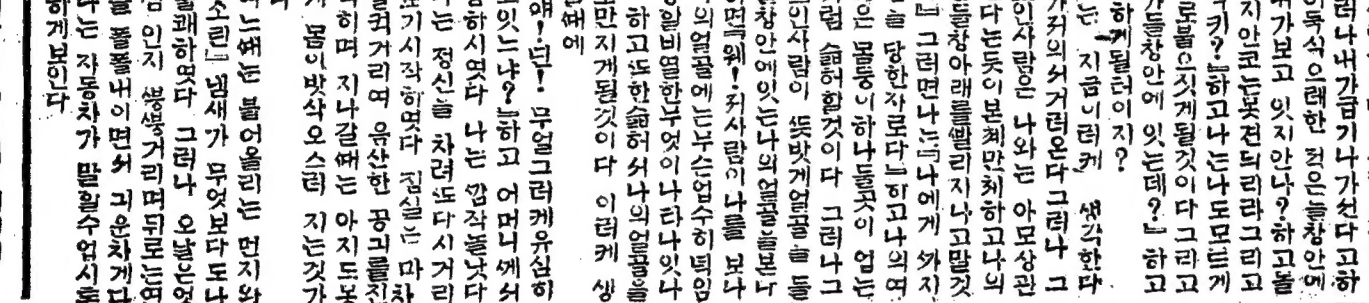 러나내가급기나가선다고하
한 걱은늘창안에
내가보고 잇지안나?하고놀
지안코는못견듸리라그리고
키?』하고나는나도모르게
로불으짓게될것이다그리고
가들창안에 잇는데?』하고
하게될터이지?
는 지금이러케 생각한다
거러온다그러나 그
인사람은 나와는 아모상관
다는듯이본체만체하고나의
들창아래를빨리지나고말것
』 그러면나는『나에게 까지
을 당한자로다』하고나의여
은 몸둥이하나둘곳이 업는
럼 슯허할것이다 그러나그
인사람이 또밧게얼골을 돌
창안에잇는나의얼골을본다
면『웨! 저사람이나를 보나
의얼골에는무슨업수히녁임
일비열한무엇이나타나잇나
하고또한슯허서나의얼골을
만지게될것이다 이러케 생
때에
얘!던! 무얼그러케유심히
잇느냐?』하고 어머니께서
하시엿다 나는 깜작놀낫다
는 정신을 차려또다시거리
기시작하엿다 집실은 마차
컥거리며 음산한 공긔를진
히며 지나갈때는 아지도못
몸이밧삭오스러 지는것가
다
느때는 불어올리는 먼지와
소린』냄새가 무엇보다도나
쾌하엿다 그러나 오날은엇
인지 뿡뿡거리며뒤로는연
폴폴내이면서 긔운차게다
는 자동차가 말할수업시로
하게보인다